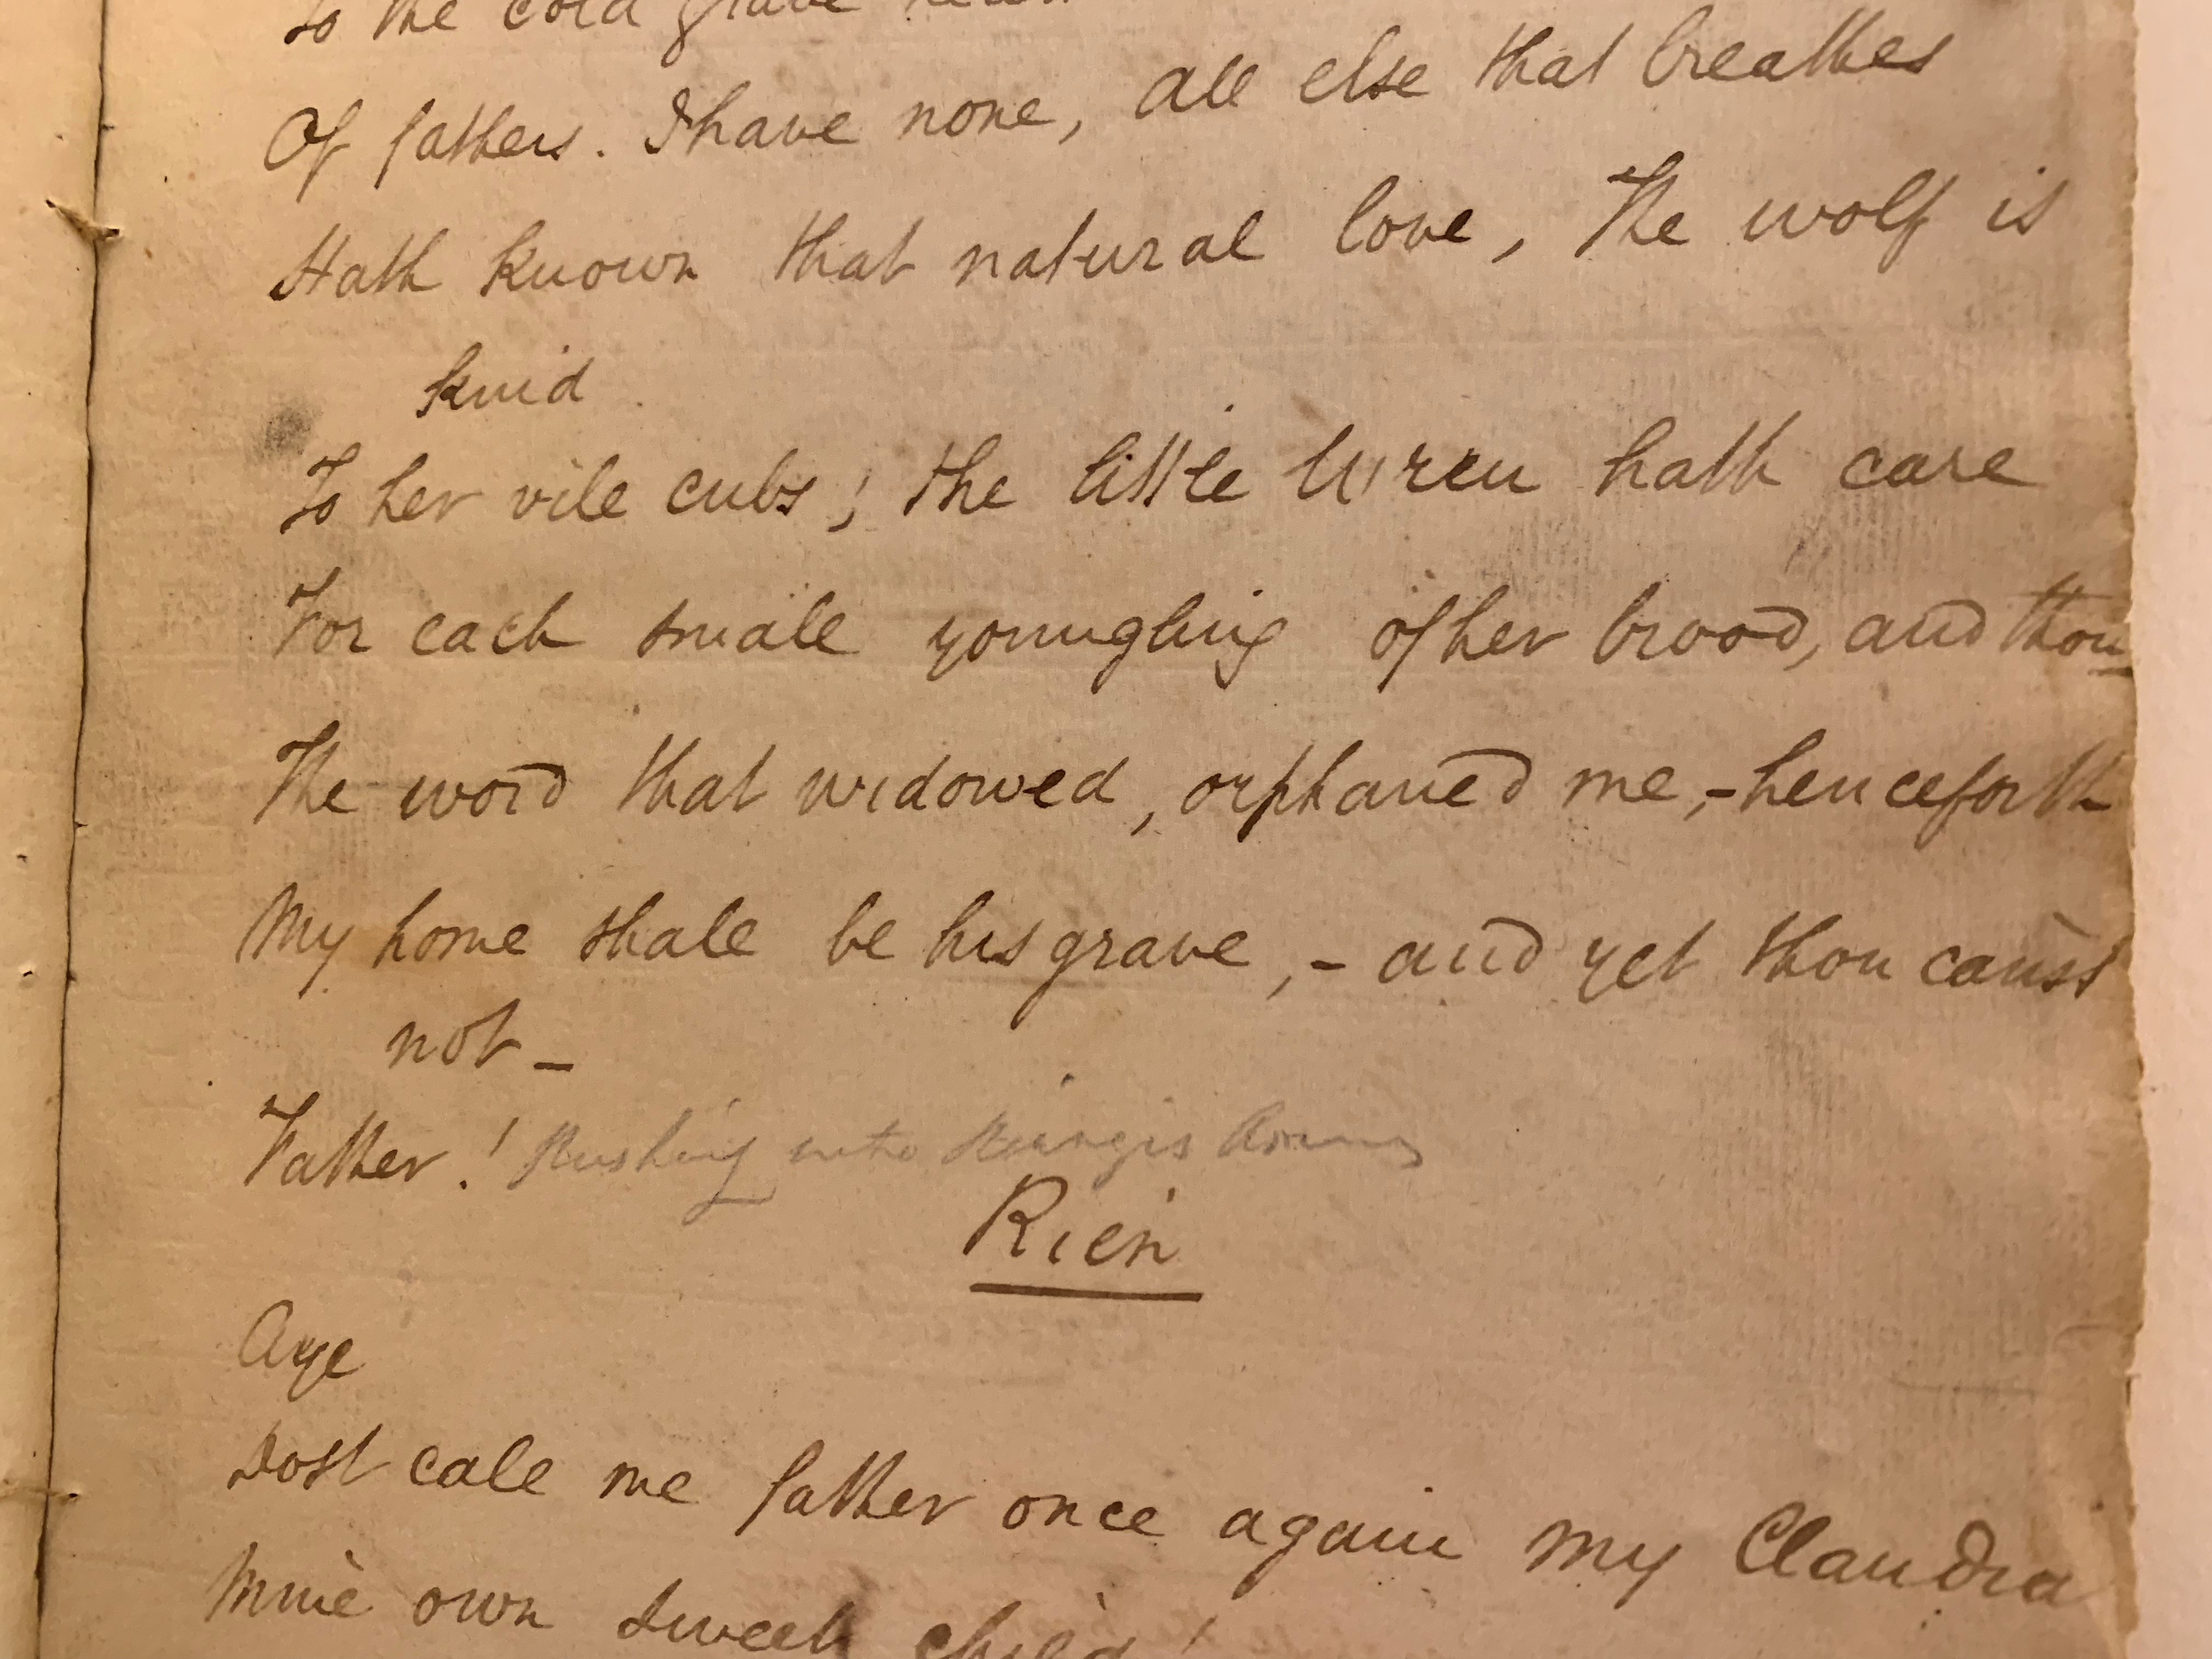 To the cold grave
Of fathers. I have none, all else that breathes
Hath known that natural love, The wolf is
kind
To her vile cubs; the little wren hath care
For each small youngling of her brood, and thou
The word that widowed, orphaned me, - henceforth
My home shall be his grave, - and yet thou canst
not -
Father! Rushing into Rienzis Arms
Rien
Aye
Dost call me father once again my Claudia
Mine own sweet child!